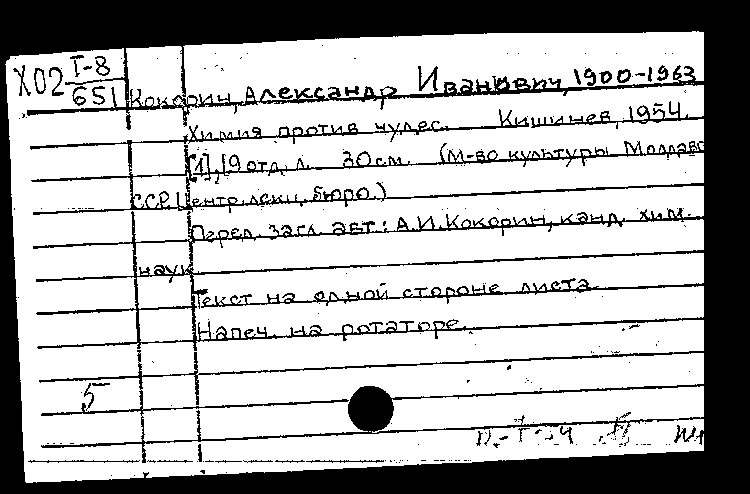 Х02 I-8
651 Кокорин, Александр Иванович, 1900-1963
Химия против чудес. Кишинев, 1954.
[1], 19 отд. л. 30 см. (М-во культуры Молдавс
ССР. Центр. лекц. бюро.)
Перед загл. авт.: А.И. Кокорин, канд. хим.
наук
Текст на одной стороне листа.
Напеч. на ротаторе.
5